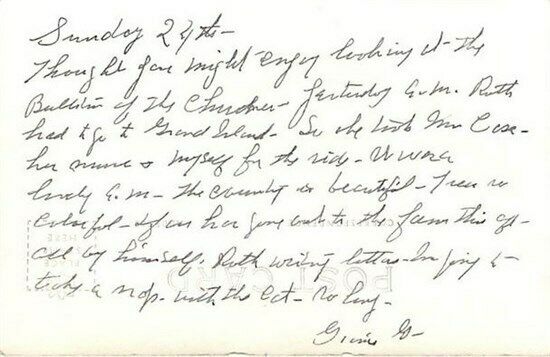 Sunday 24th-
Thought you might enjoy looking at the
Bulletin of the Churches- Yesterday a.m. Ruth
had to go to Grand Island- So she took Mrs Case-
her nurse & myself for the ride- It was a
lovely a.m- The country is beautiful- Trees so
colorful- has gone out to the farm this af-
all by himself. Ruth writing letters- Im going to
take a nap- with the cat- So long-
G-
POST CARD
HERE